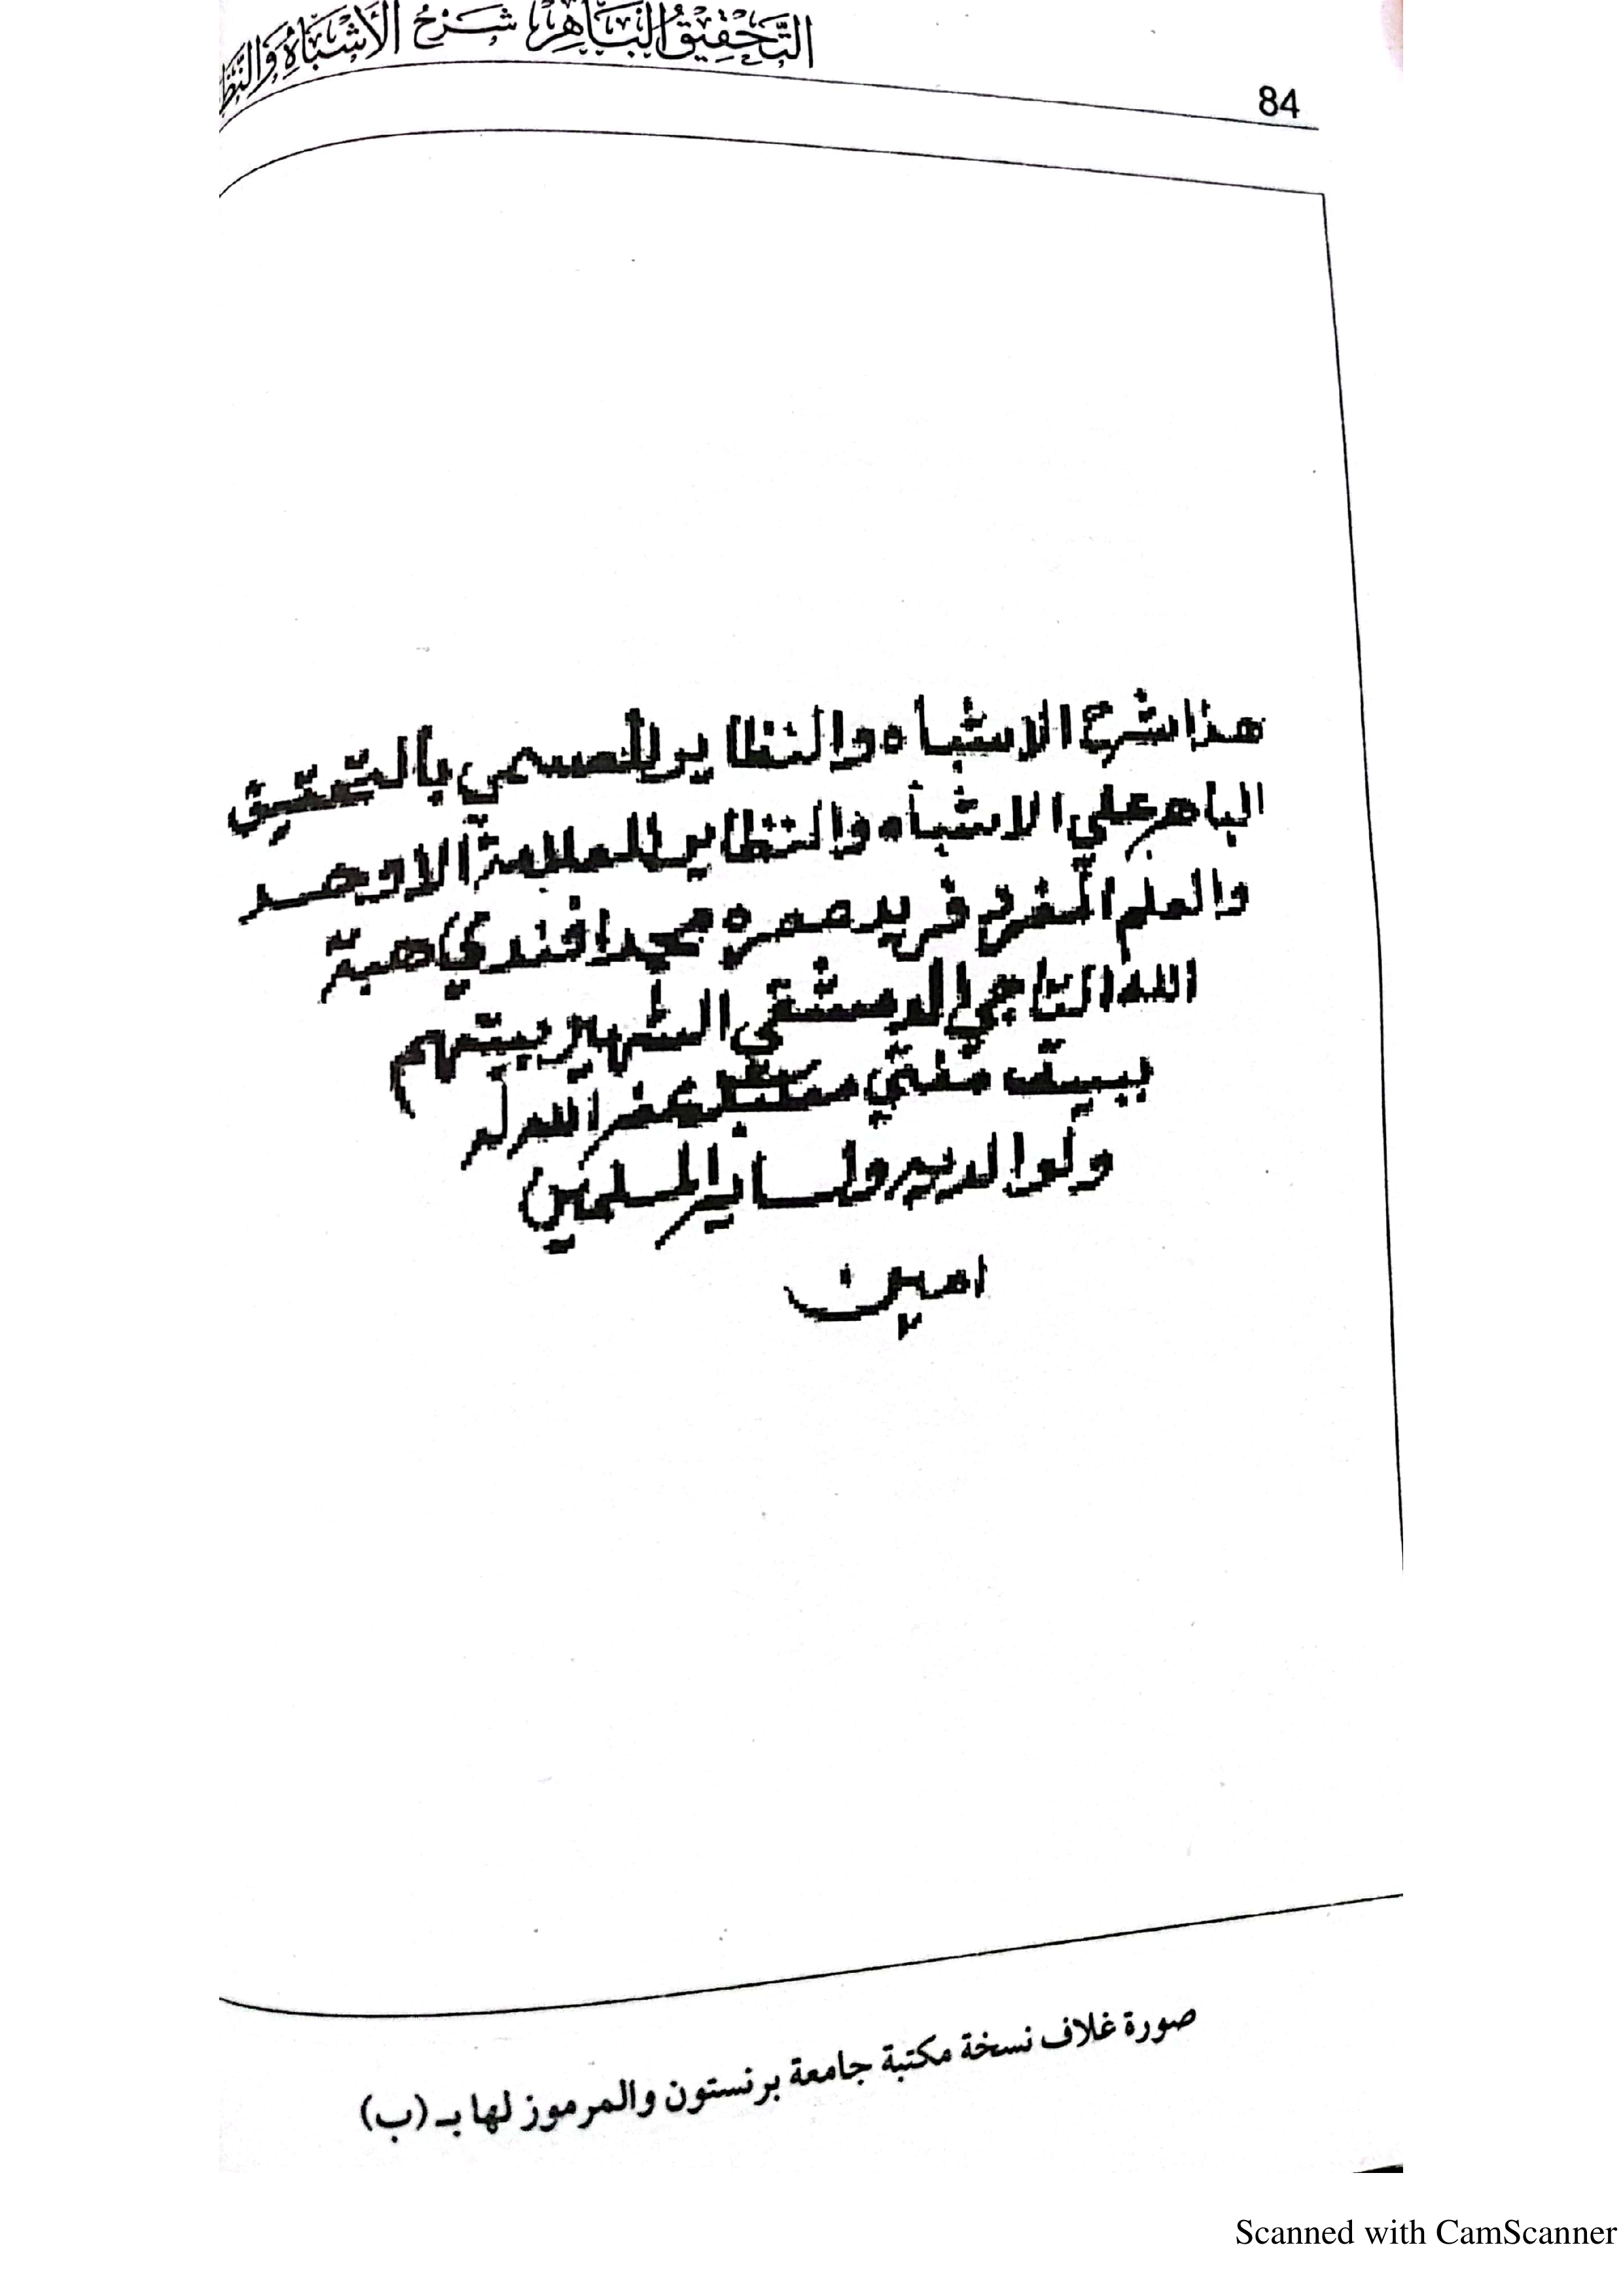 84
التَّحْقِيقُ الْبَاهِرُ شَرْحُ الْأَشْبَاهِ وَالنَّظَ
هذا شرح الاشباه والنظاير المسمي بالتحقيق
الباهر علي الاشباه والنظاير للعلامة الاوحد
والعلم المفرد فريد عصره محمد افندي هبة
الله التاجي الدمشقي الشهير بيتهم
ببيت مفتي غفر الله له
ولوالديه ولساير المسلمين
امين
٢
صورة غلاف نسخة مكتبة جامعة برنستون والمرموز لها بـ (ب)
Scanned with CamScanner